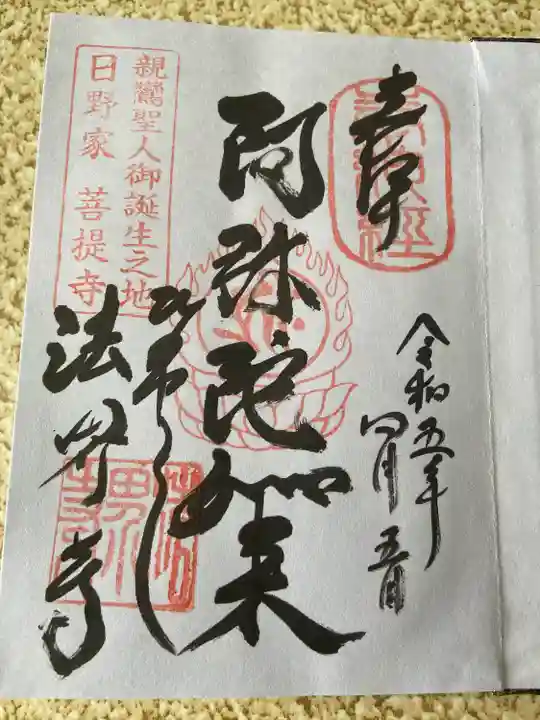 奉拝
令和五年
四月五日
阿弥陀如来
ひのやくし
法界寺
親鸞聖人御誕生之地
日野家 菩提寺